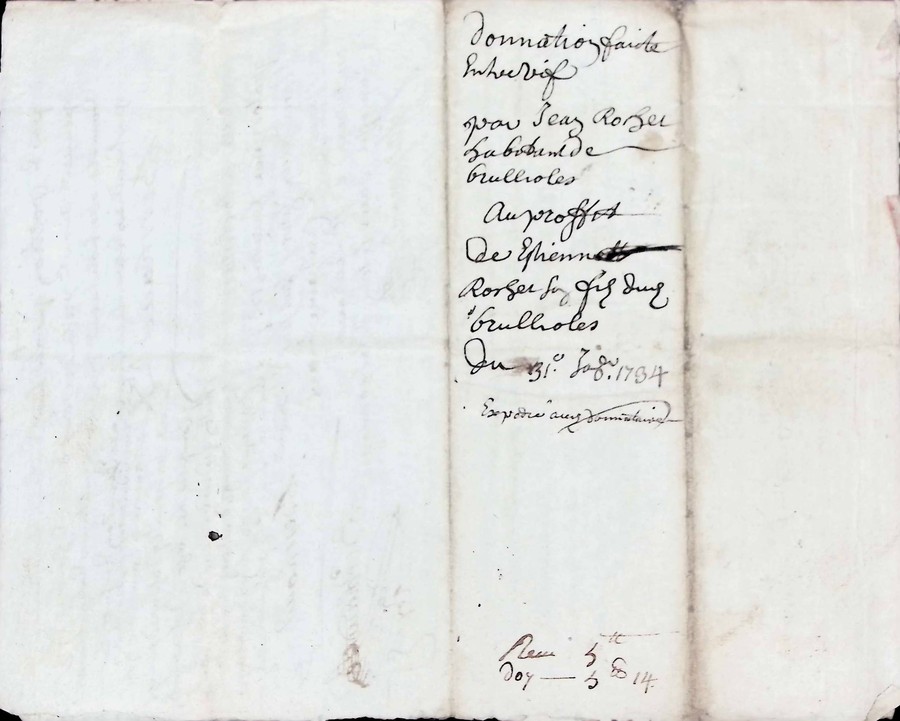 donnation faicte
Entre vif
par Jean Rozet
habotant de
brullioles
Au proffit
de Estienne
Rozet son fils dud
brullioles
Du 31º Jan 1734
Expedié aud donnataire
Receu 5 tt
doy — 5 14